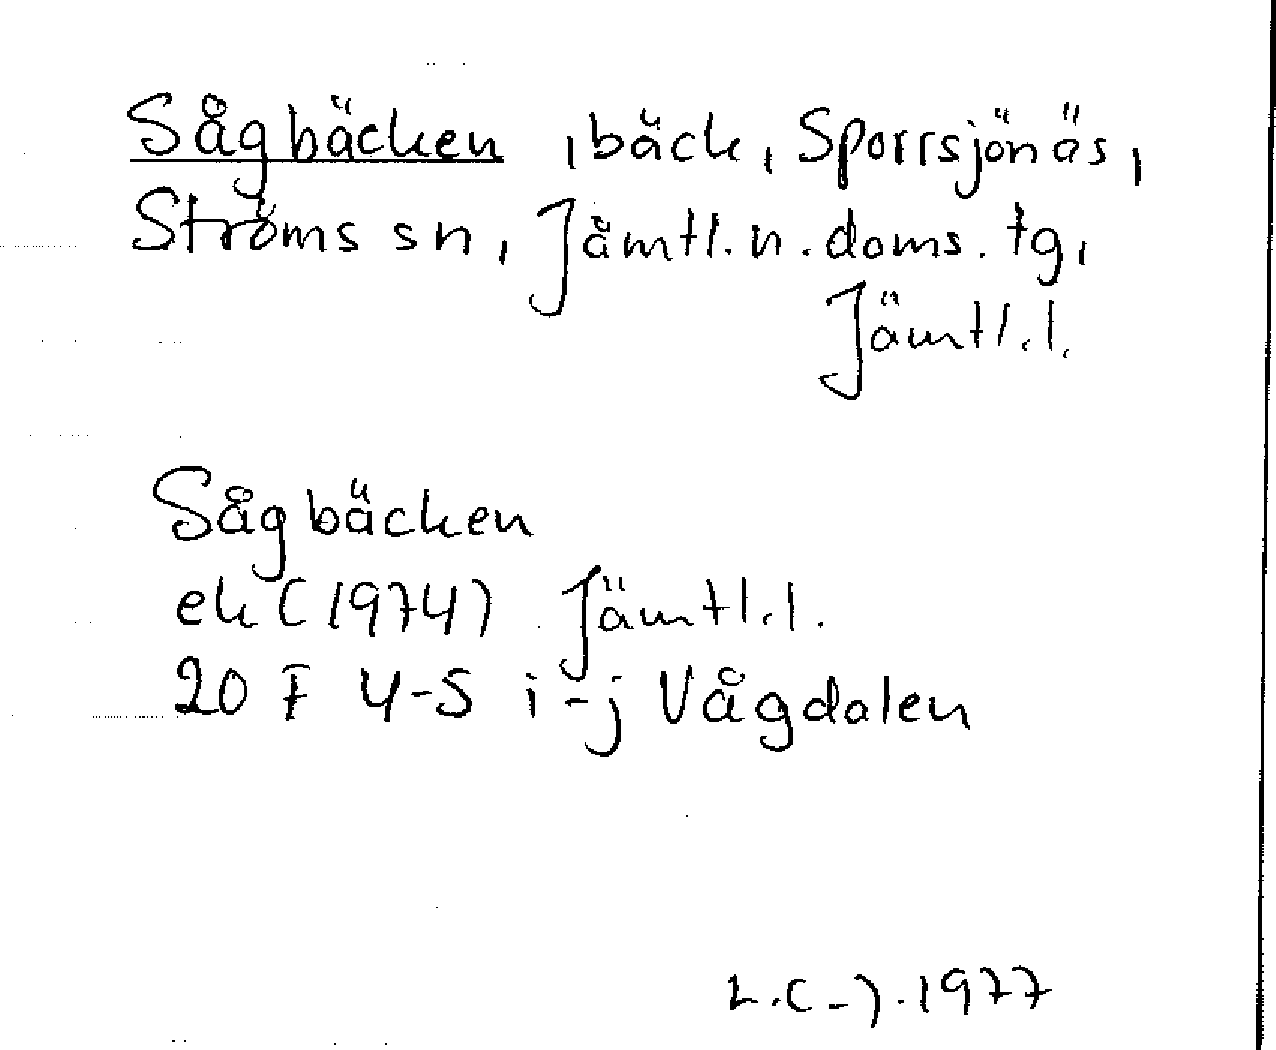 Sågbäcken , bäck, Sporrsjönäs,
Ströms sn, Jämtl. n. doms. tg,
Jämtl. l.
Sågbäcken
ek (1974) Jämtl. l.
20 F 4-5 i-j Vågdalen
1977